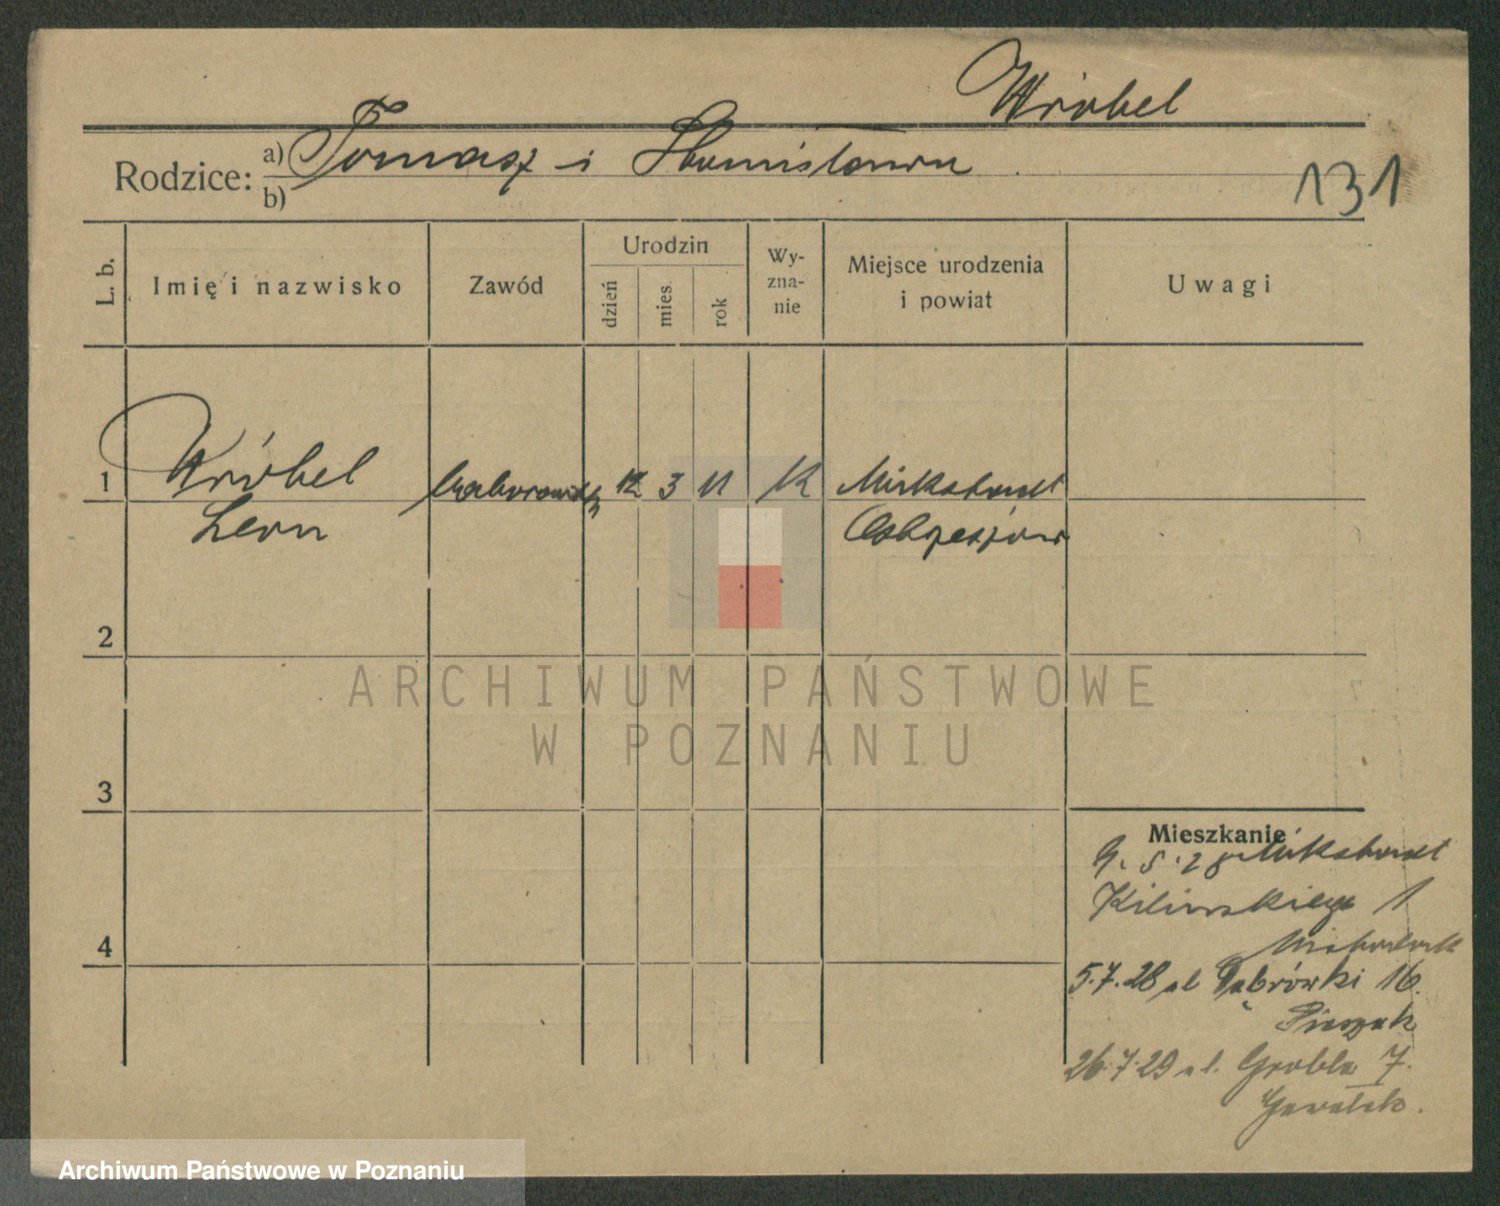 Wróbel
Rodzice: a) Tomasz i Stanisława
b)
131
L. b.
Imię i nazwisko
Zawód
Urodzin
dzień
mies.
rok
Wy-
zna-
nie
Miejsce urodzenia
i powiat
Uwagi
1
Wróbel
Leon
12 3 11
k
Mikstadt
Ostrzeszów
2
3
4
Mieszkanie
9. 5. 28 Mikstadt
Kilińskiego 1
5.7.28 ul Dąbrówki 16.
26.7.29 ul. Grobla 7.
ARCHIWUM PAŃSTWOWE
W POZNANIU
Archiwum Państwowe w Poznaniu